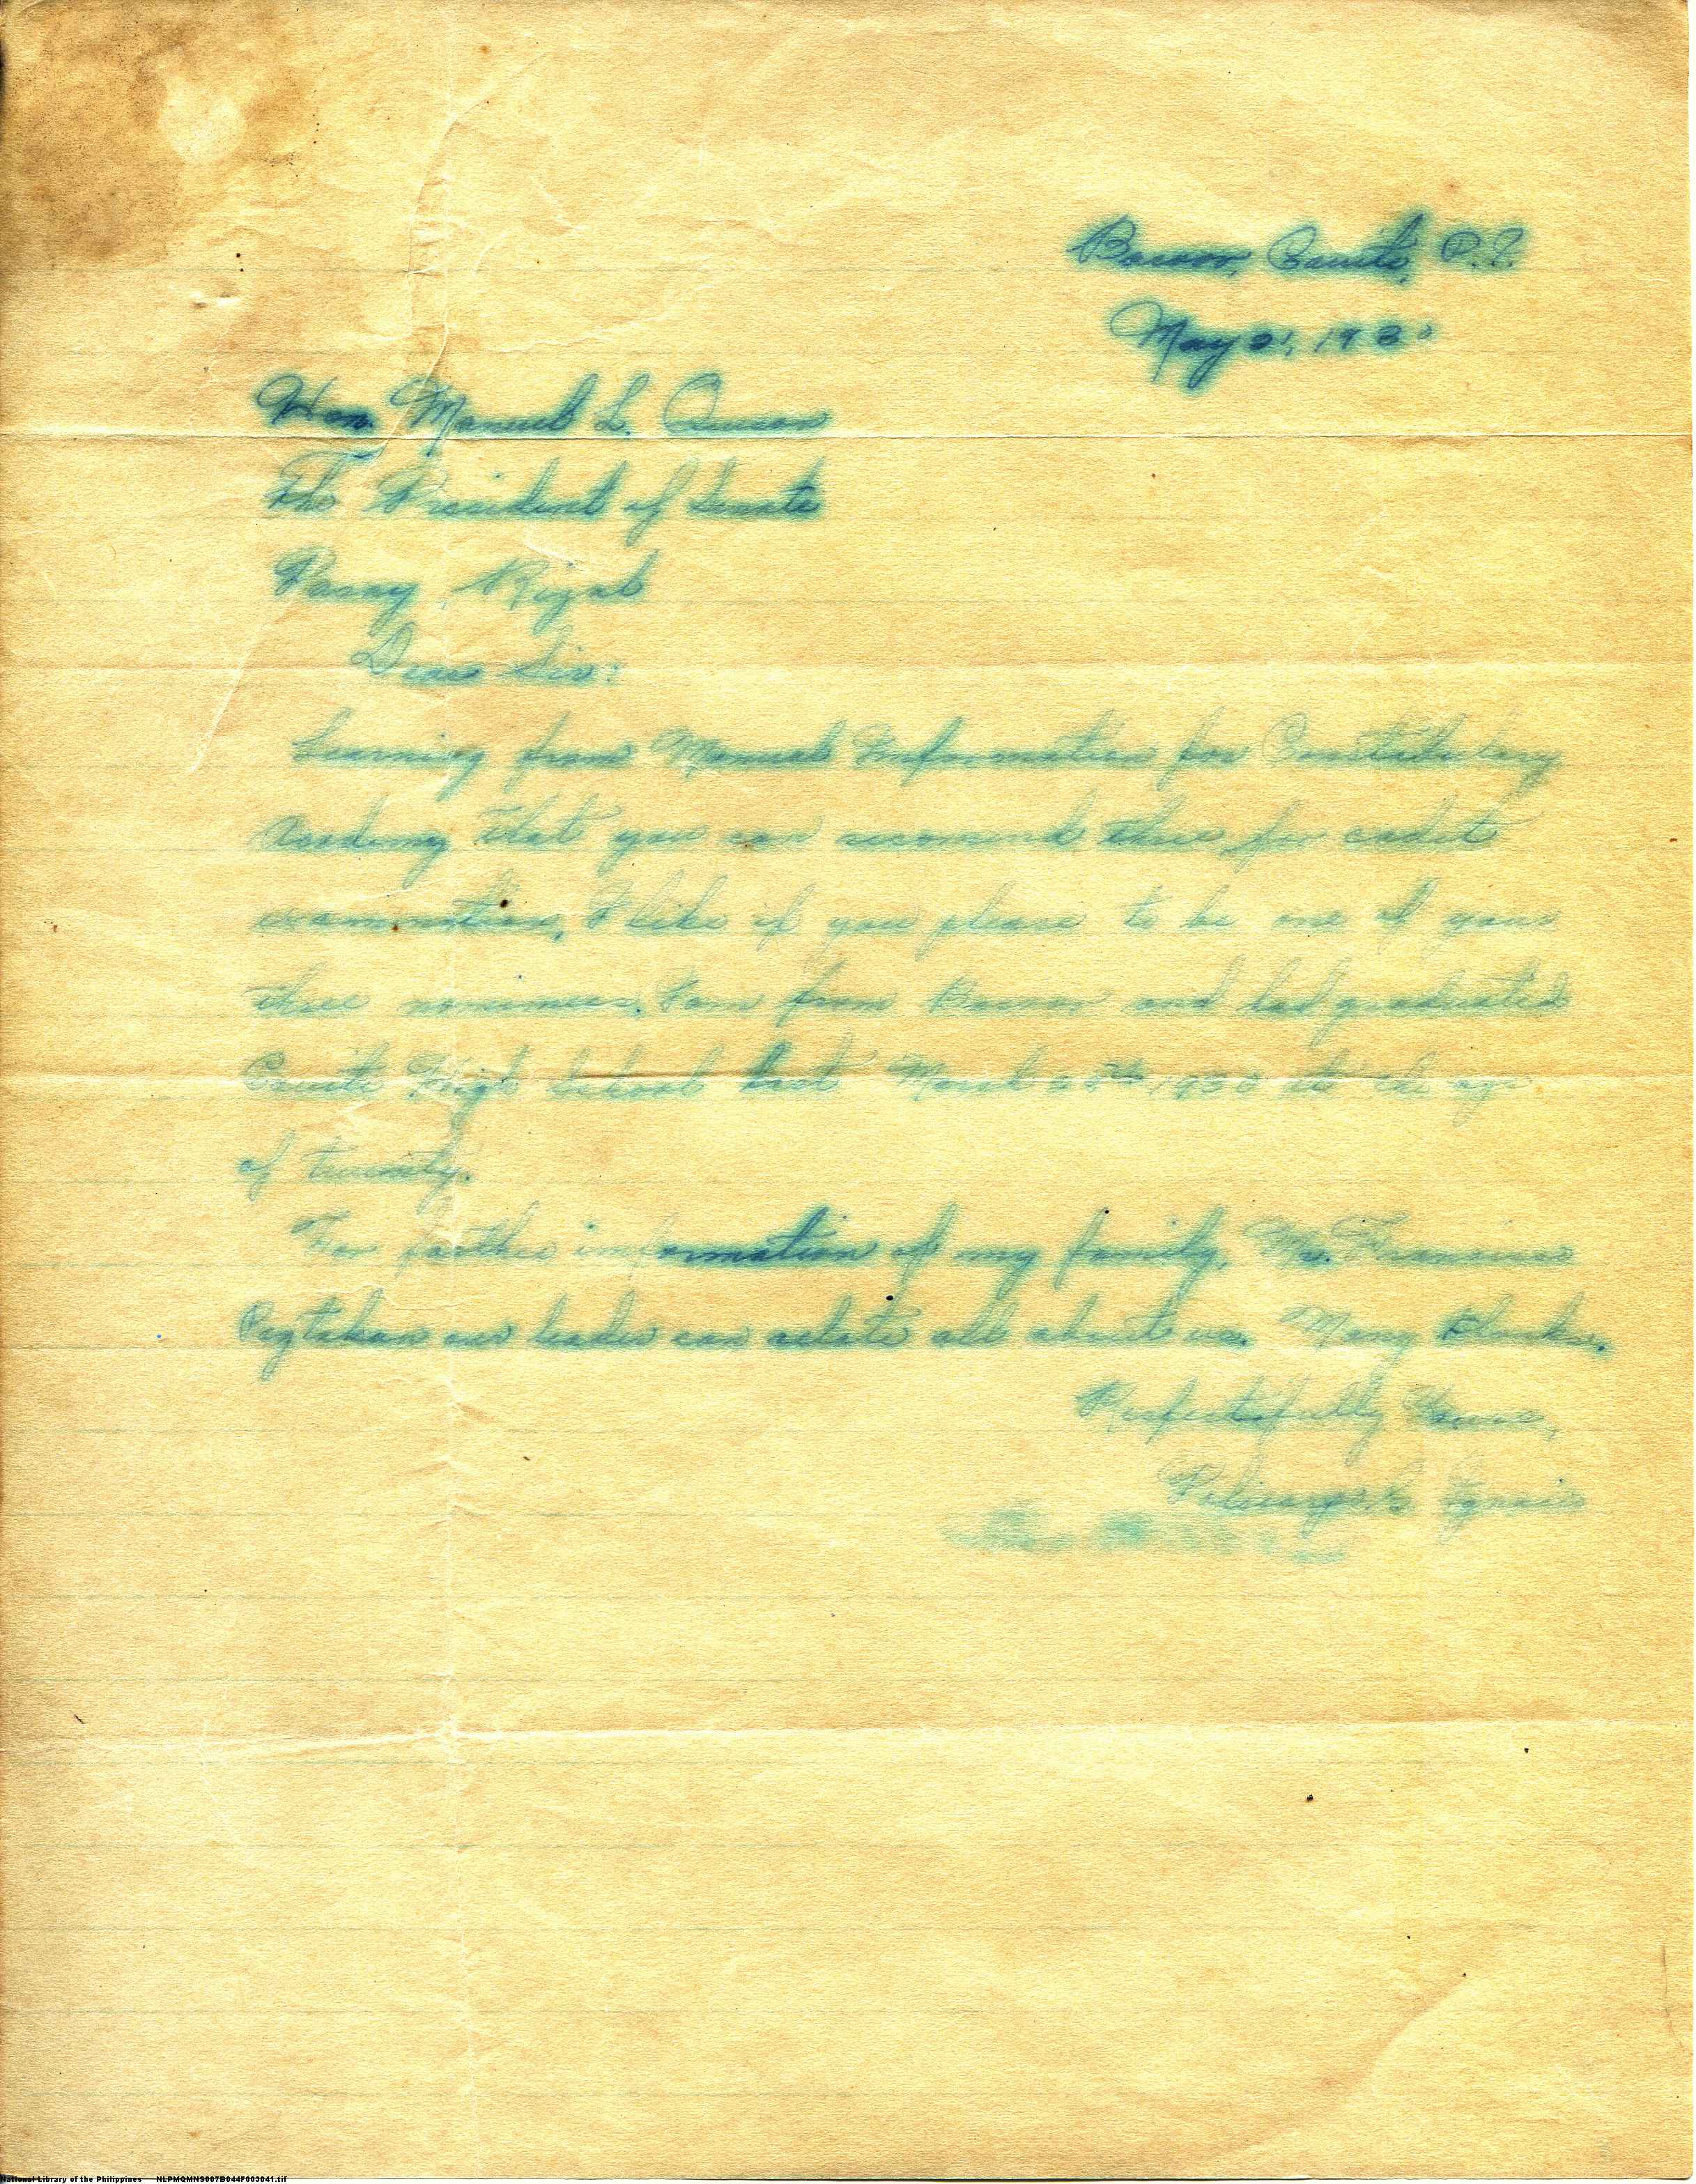 Bacoor, Cavite, P.I.
May 21, 1930
Hon. Manuel L. Quezon
The President of Senate
Pasay, Rizal
Dear Sir:
Learning from Manual Information for Constabulary
Academy that you can recommend three for cadet
examination, I like if you please to be one of your
three nominees. I am from Bacoor and had graduated
Cavite High School last March 1930 at the age
of twenty.
For further information of my family, Mr. Francisco
our leader can relate all about us. Many thanks.
Respectfully Yours,
Ignacio
National Library of the Philippines NLPMQMNS007B044F003041.tif